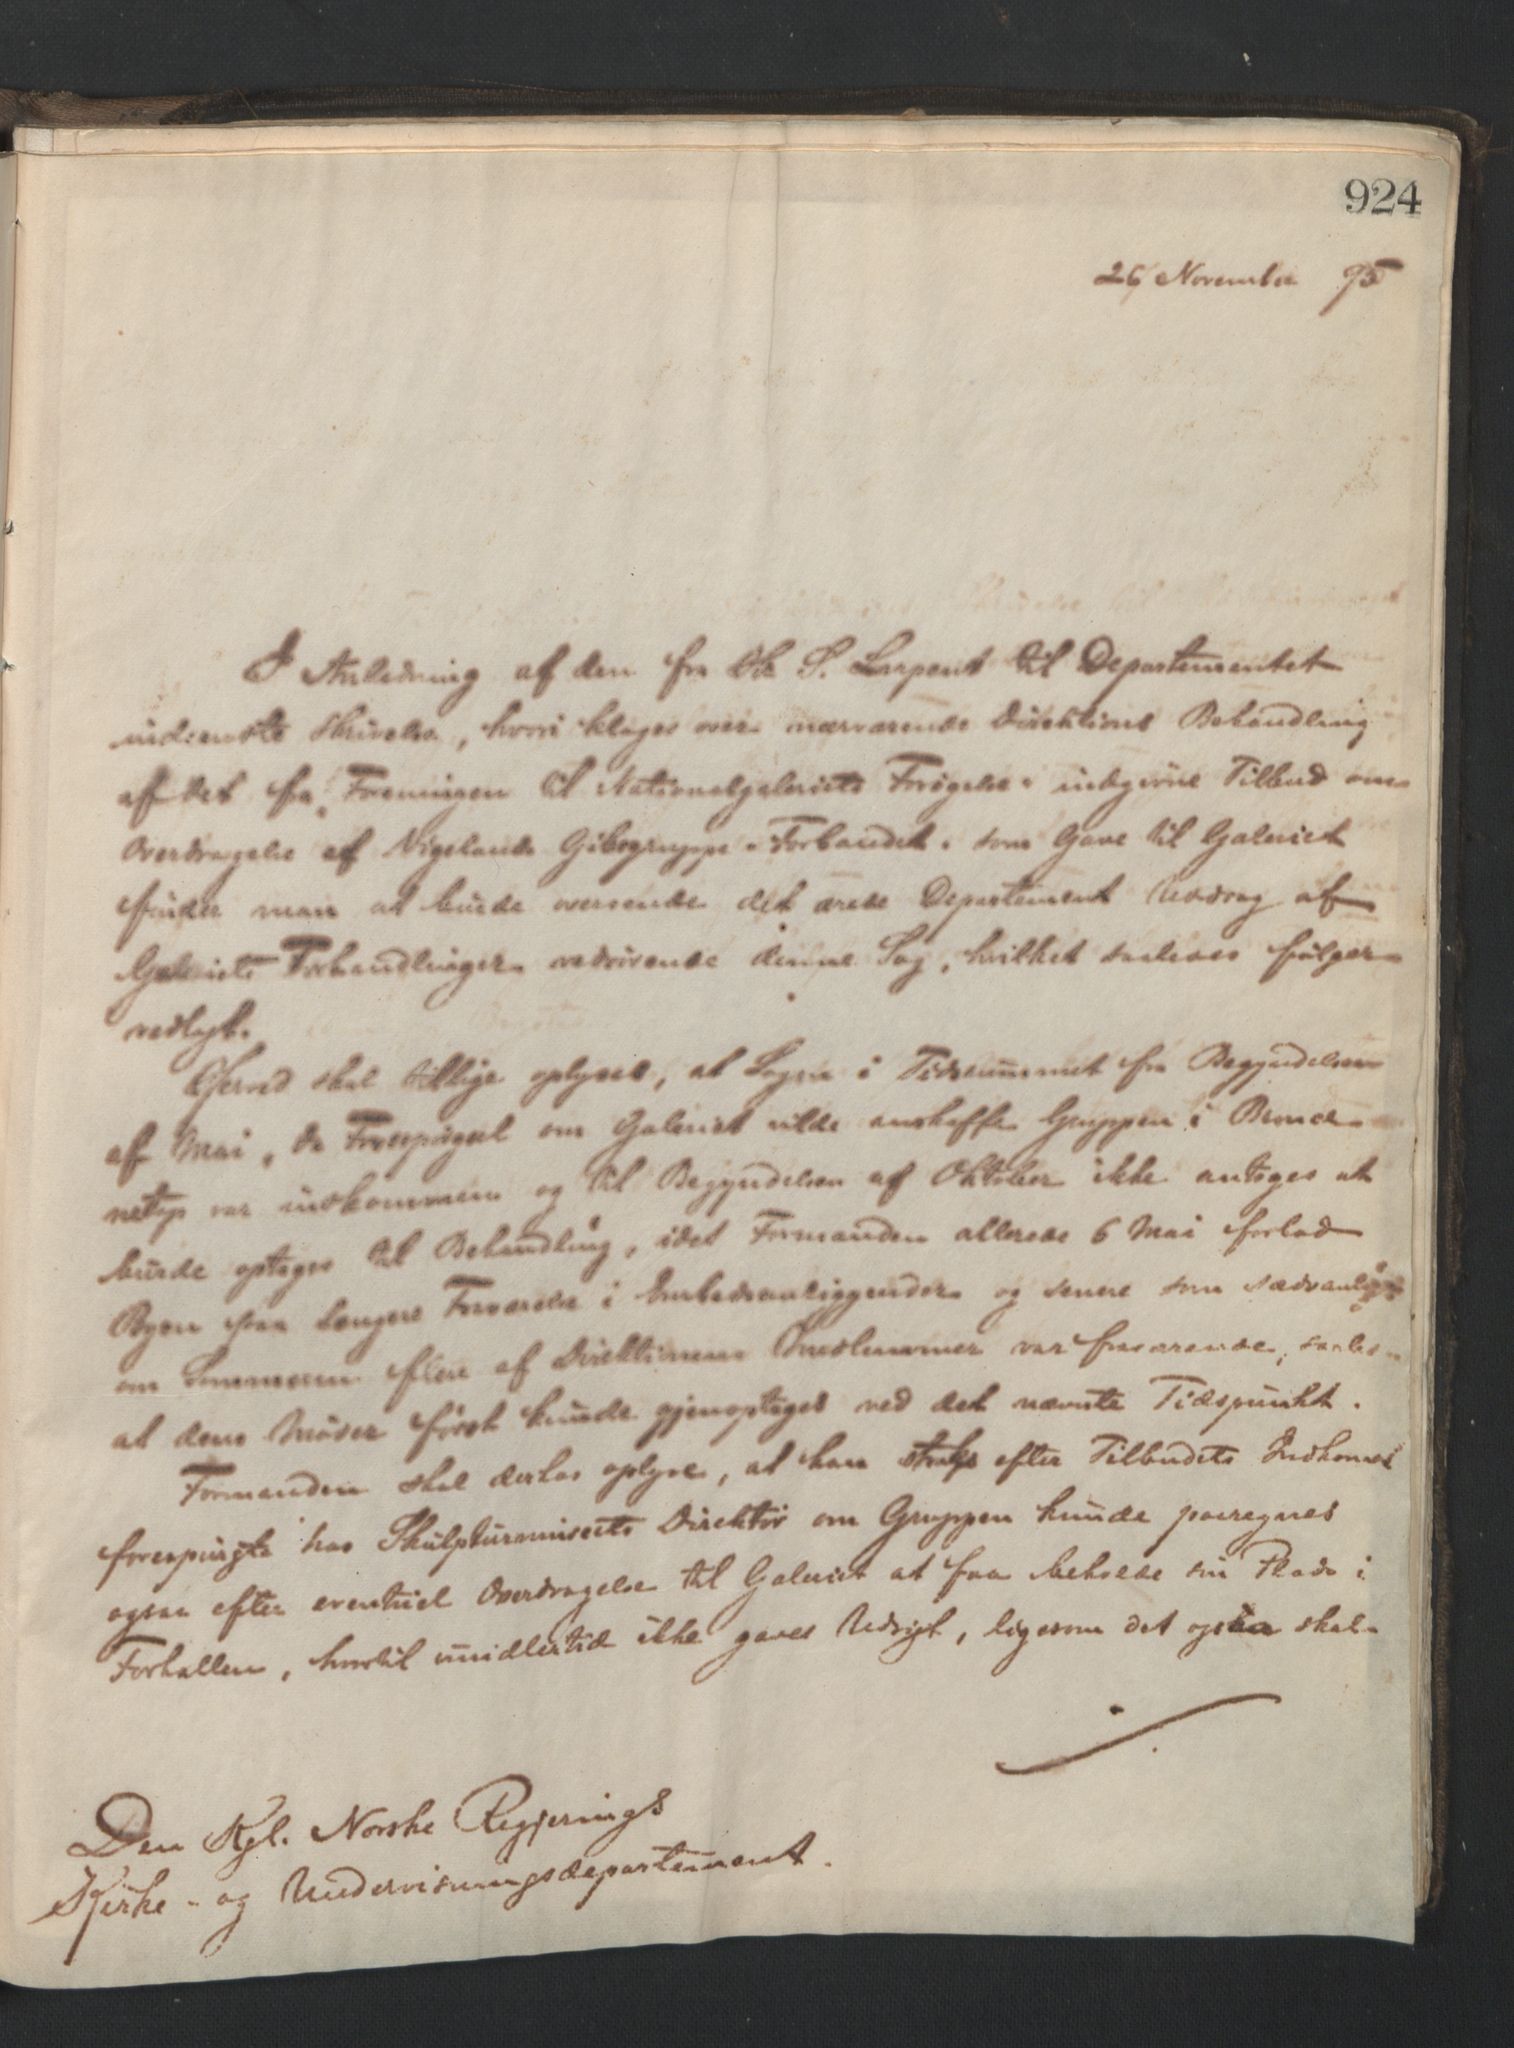 924
26 November 95
I Anledning af den fra Hr S. Larpent til Departementet
indsendte Skrivelse, hvori klages over nærværende Direktions Behandling
af det fra "Foreningen til Nationalgaleriets Forøgelse" indgivne Tilbud om
Overdragelse af Vigelands Gibsgruppe "Forbandet" som Gave til Galeriet
finder man at burde oversende det ærede Departement Uddrag af
Galeriets Forhandlinger vedrørende denne Sag, hvilket saaledes følger
vedlagt.
Herved skal tillige oplyses, at Sagen i Tidsrummet fra Begyndelsen
af Mai, da Forespørgsel om Galeriet vilde anskaffe Gruppen i Bronce
netop var indkommen og til Begyndelsen af Oktober ikke antoges at
burde optages til Behandling, idet Formanden allerede 6 Mai forlod
Byen paa længere Fraværelse i Embedsanliggender og senere som sædvanlig
om Sommeren flere af Direktionens Medlemmer var fraværende, saaledes
at dens Møder først kunde gjenoptages ved det nævnte Tidspunkt.
Formanden skal derhos oplyse, at han straks efter Tilbudets Indkomst
forespurgte hos Skulpturmuseets Direktør om Gruppen kunde paaregnes
ogsaa efter eventuel Overdragelse til Galeriet at faa beholde sin Plads i
Forhallen, hvortil imidlertid ikke gaves Udsigt, ligesom det ogsaa skal
Den Kgl. Norske Regjerings
Kirke- og Undervisningsdepartement.